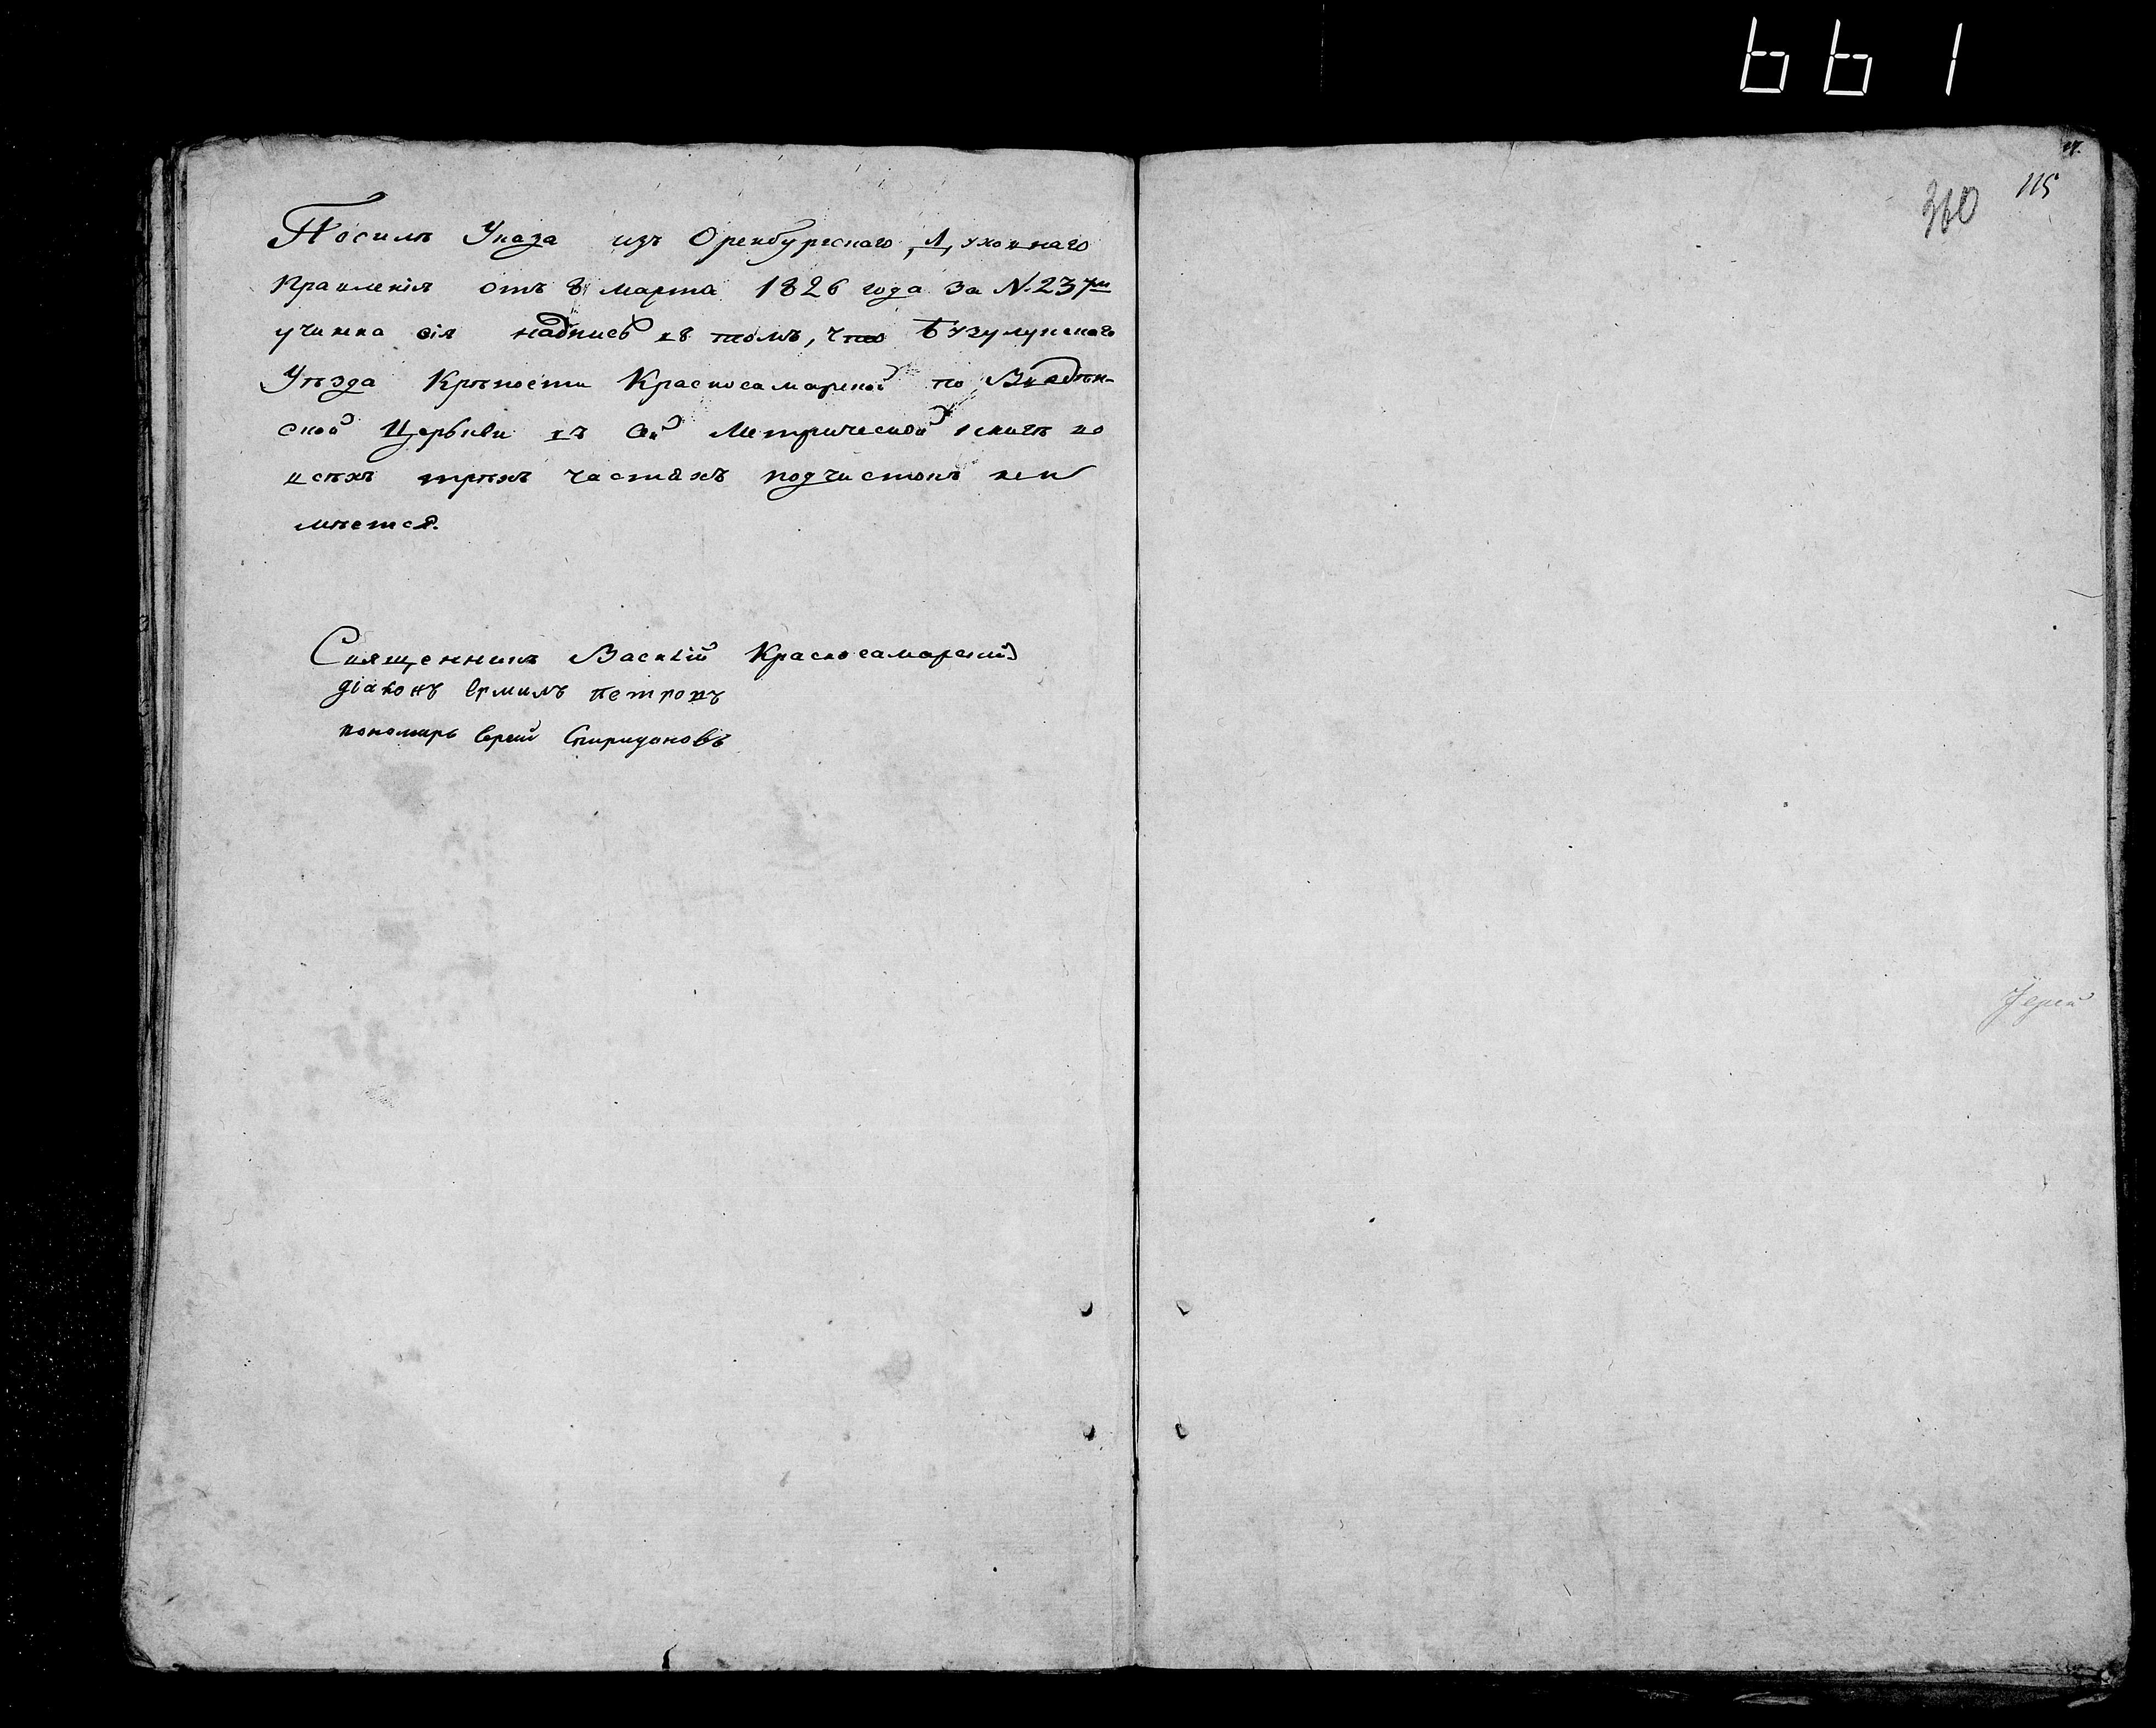 Посилѣ Указа изъ Оренбургскаго Духовнаго
Правленія отъ 8 марта 1826 года за №. 237м
учинна сія надпись въ томъ, что Бузулунскаго
Уѣзда Крѣпости Красносамарской по Введѣн-
ской Церькви въ сей Метрической книгѣ во
всѣхъ трѣхъ частяхъ подчистокъ неи
мѣется.
Священникъ Василій Красносамарскій
діаконъ Ермилъ Петровъ
пономарь Сергей Спиридоновъ
360 115
Іерей
661